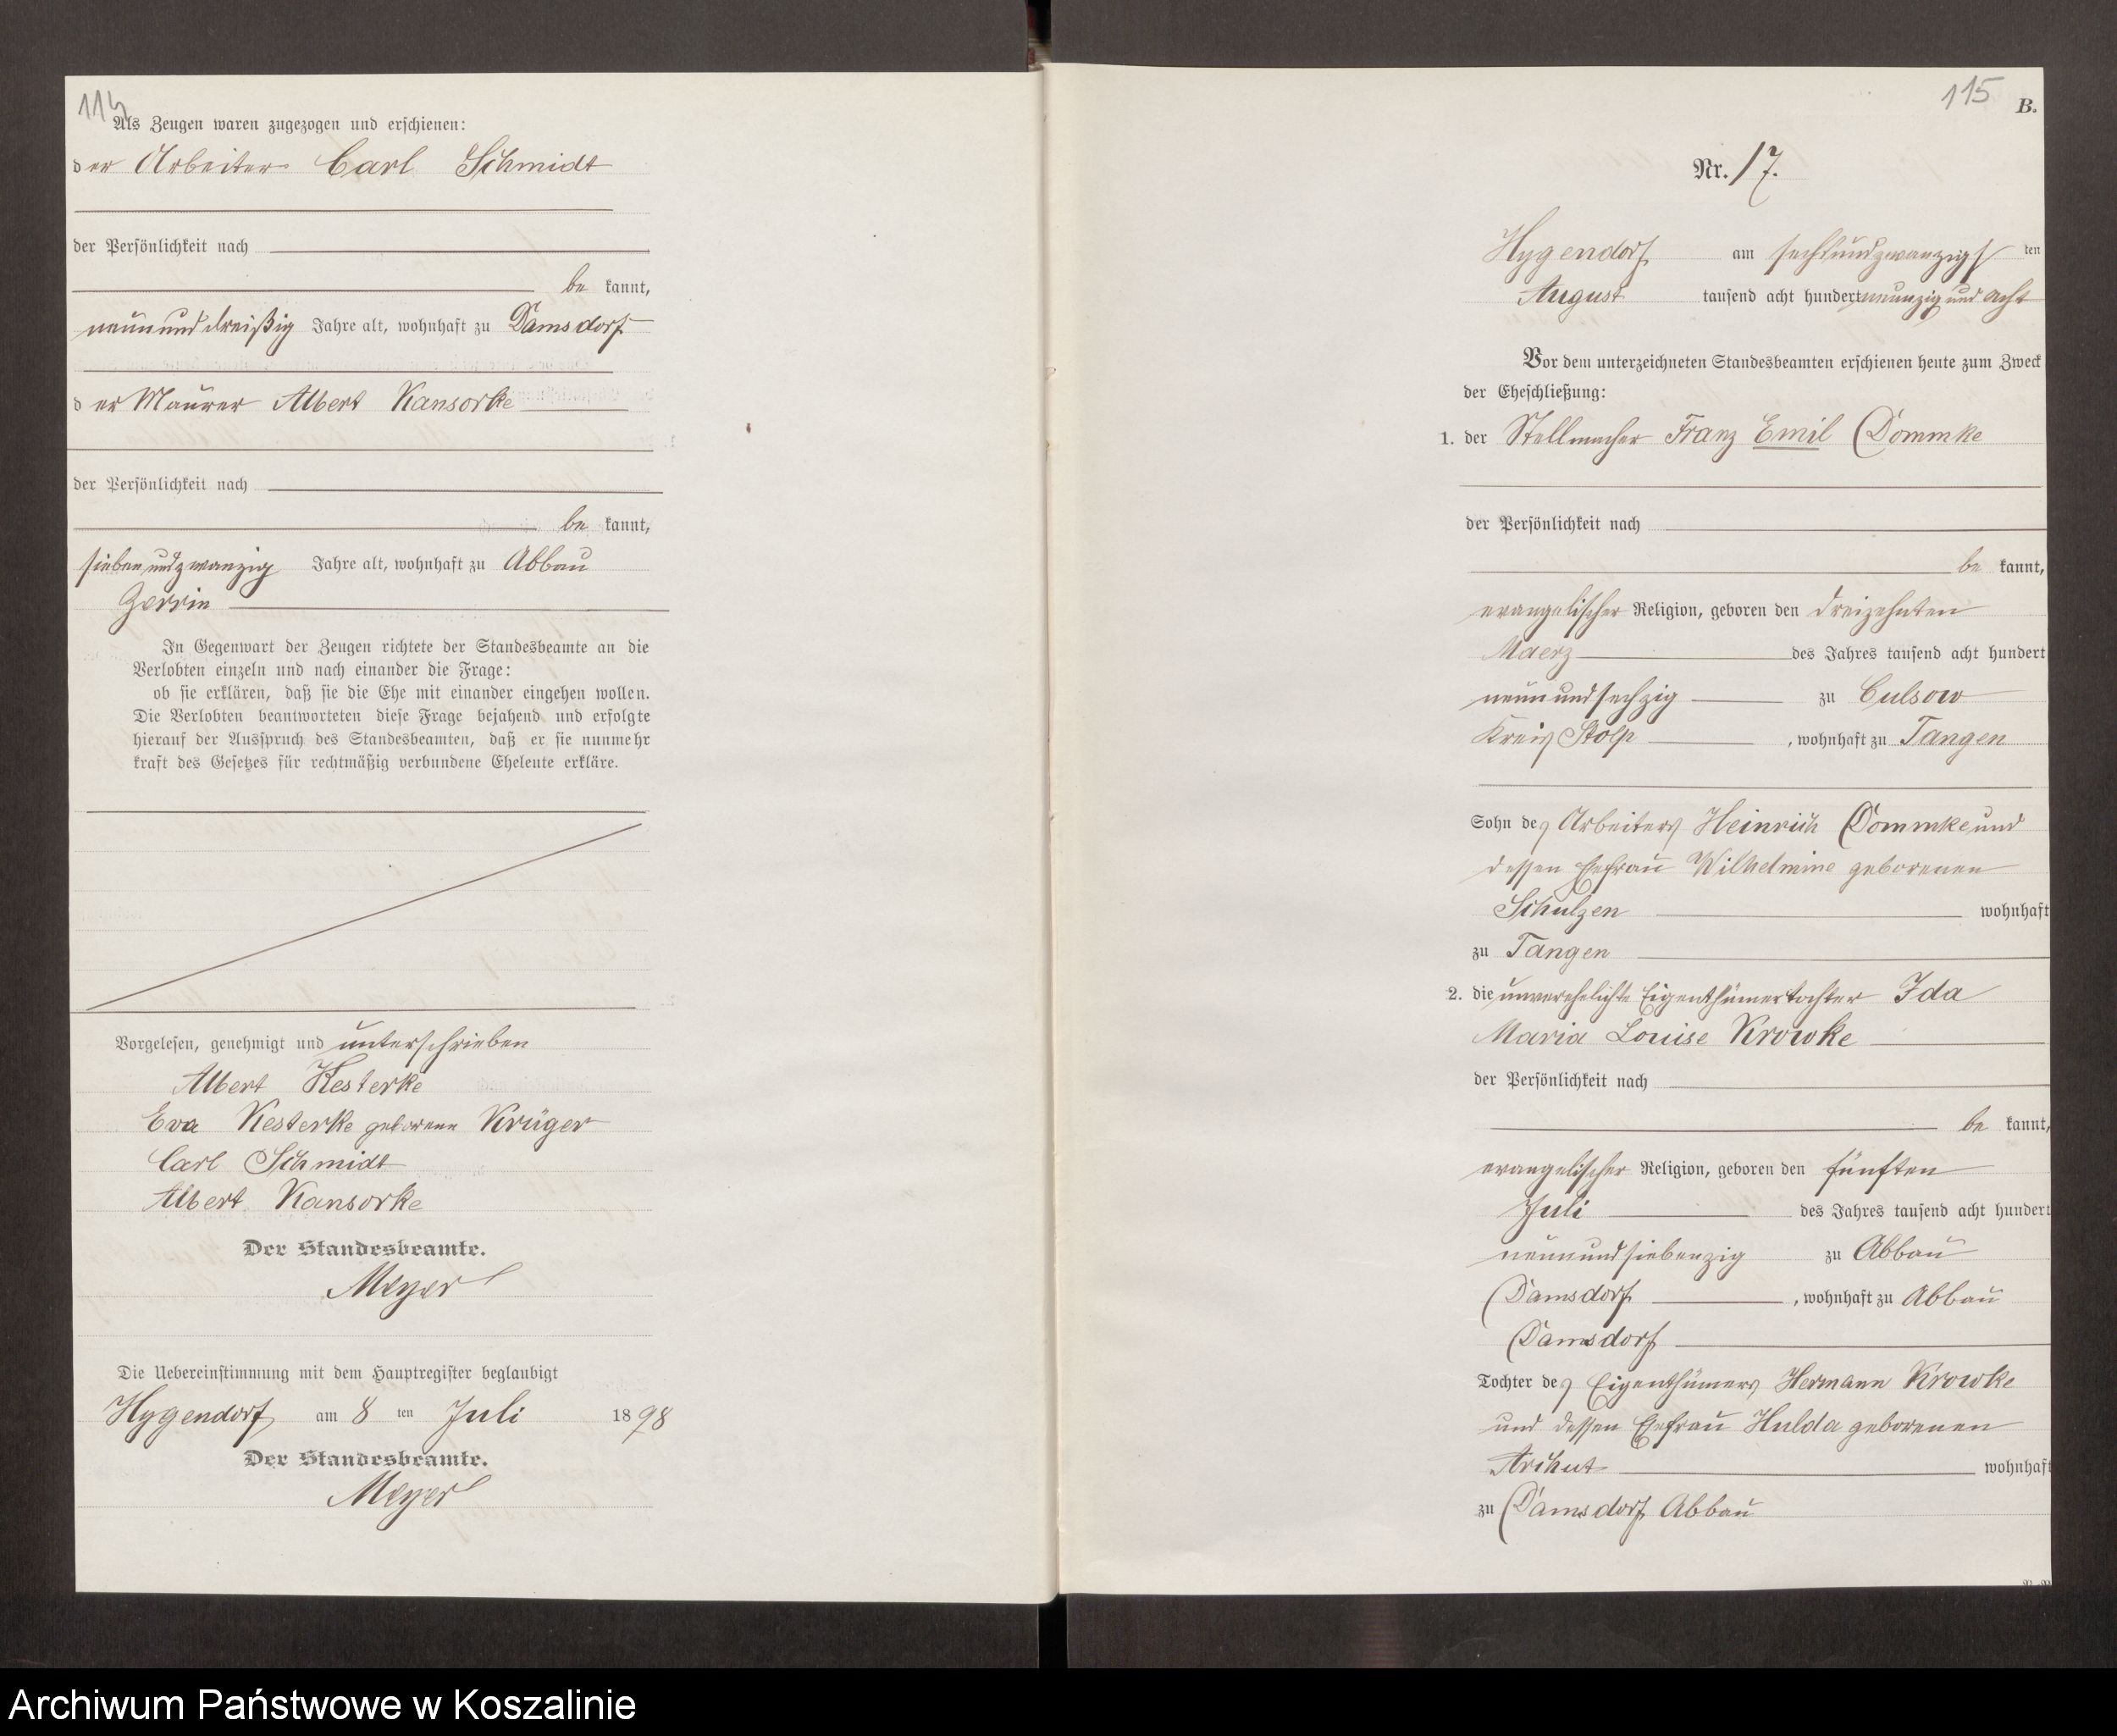 114
Als Zeugen waren zugezogen und erschienen:
der Arbeiter Carl Schmidt
der Persönlichkeit nach
be kannt,
neununddreißig Jahre alt, wohnhaft zu Damsdorf
der Maurer Albert Kansorke
der Persönlichkeit nach
be kannt,
siebenundzwanzig Jahre alt, wohnhaft zu Abbau
Zerrin
In Gegenwart der Zeugen richtete der Standesbeamte an die
Verlobten einzeln und nach einander die Frage:
ob sie erklären, daß sie die Ehe mit einander eingehen wollen.
Die Verlobten beantworteten diese Frage bejahend und erfolgte
hierauf der Ausspruch des Standesbeamten, daß er sie nunmehr
kraft des Gesetzes für rechtmäßig verbundene Eheleute erkläre.
Vorgelesen, genehmigt und unterschrieben
Albert Kesterke
Eva Kesterke geborene Krüger
Carl Schmidt
Albert Kansorke
Der Standesbeamte.
Meyer
Die Uebereinstimmung mit dem Hauptregister beglaubigt
Hygendorf am 8 ten Juli 1898
Der Standesbeamte.
Meyer
115
B.
Nr. 17.
Hygendorf am sechsundzwanzigsten
August tausend acht hundert neunzig und acht
Vor dem unterzeichneten Standesbeamten erschienen heute zum Zweck
der Eheschließung:
1. der Stellmacher Franz Emil Dommke
der Persönlichkeit nach
be kannt,
evangelischer Religion, geboren den dreizehnten
Maerz des Jahres tausend acht hundert
neunundsechzig zu Culsow
Kreis Stolp, wohnhaft zu Tangen
Sohn des Arbeiters Heinrich Dommke und
dessen Ehefrau Wilhelmine geborenen
Schulzen wohnhaft
zu Tangen
2. die unverehelichte Eigenthümertochter Ida
Maria Louise Krowke
der Persönlichkeit nach
be kannt,
evangelischer Religion, geboren den fünften
Juli des Jahres tausend acht hundert
neunundsiebenzig zu Abbau
Damsdorf, wohnhaft zu Abbau
Damsdorf
Tochter des Eigenthümers Hermann Krowke
und dessen Ehefrau Hulda geborenen
Archut wohnhaft
zu Damsdorf Abbau
Archiwum Państwowe w Koszalinie